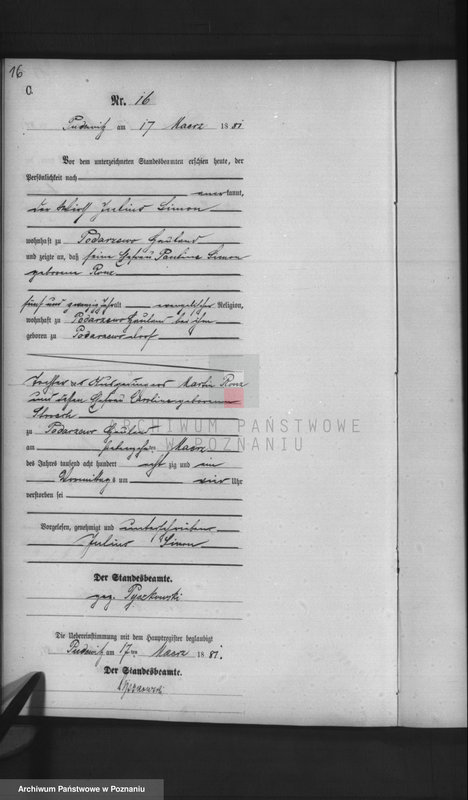 16
C.
Nr. 16
Pudewitz am 17 Maerz 1881
Vor dem unterzeichneten Standesbeamten erschien heute, der
Persönlichkeit nach
anerkannt,
der Wirth Julius Simon
wohnhaft zu Podarzewo Hauland
und zeigte an, daß seine Ehefrau Pauline Simon
geborene Ronz
fünf und zwanzig Jahr alt evangelischer Religion,
wohnhaft zu Podarzewo Hauland bei ihm
geboren zu Podarzewo Dorf
Tochter des Martin Ronz
und dessen Ehefrau Caroline geborenen
zu Podarzewo Hauland
am Maerz
des Jahres tausend acht hundert achtzig und ein
Vormittags um vier Uhr
verstorben sei
Vorgelesen, genehmigt und unterschrieben
Julius Simon
Der Standesbeamte.
gez. Tyczkowski
Die Uebereinstimmung mit dem Hauptregister beglaubigt
Pudewitz am 17ten Maerz 1881.
Der Standesbeamte.
ARCHIWUM PAŃSTWOWE
W POZNANIU
Archiwum Państwowe w Poznaniu